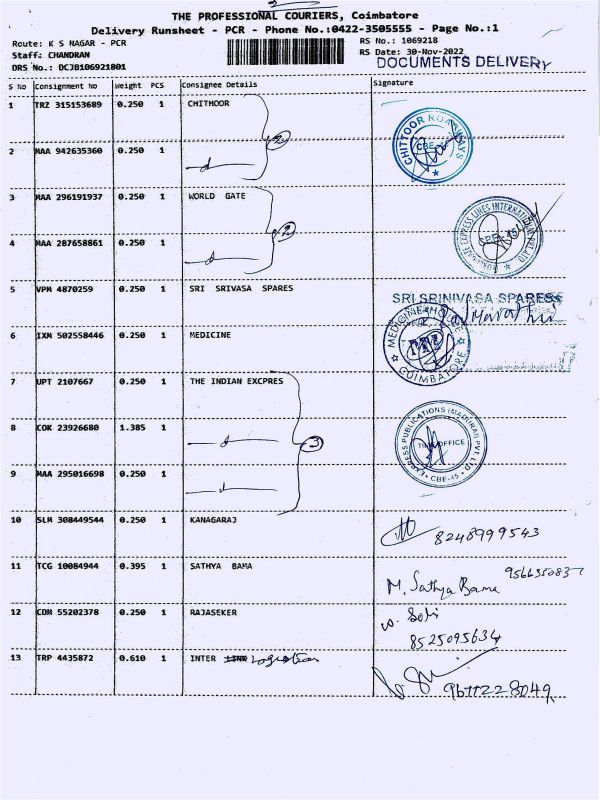 2
THE PROFESSIONAL COURIERS, Coimbatore
Delivery Runsheet - PCR - Phone No.:0422-3505555 - Page No.:1
Route: K S NAGAR - PCR
RS No.: 1069218
Staff: CHANDRAN
RS Date: 30-Nov-2022
DRS No.: DCJB106921801
DOCUMENTS DELIVERY
S No Consignment No Weight PCS Consignee Details Signature
1 TRZ 315153689 0.250 1 CHITHOOR
CHITTOOR ROADWAYS
CBE
2
2 MAA 942635360 0.250 1
3 MAA 296191937 0.250 1 WORLD GATE
EXPRESS LINES INTERNATIONAL
2
4 MAA 287658861 0.250 1
5 VPM 4870259 0.250 1 SRI SRIVASA SPARES
SRI SRINIVASA SPARES
6 IXM 502558446 0.250 1 MEDICINE
MEDICINE HOUSE
COIMBATORE
7 UPT 2107667 0.250 1 THE INDIAN EXCPRES
8 COK 23926680 1.385 1
3
EXPRESS PUBLICATIONS (MADURAI) PVT LTD
OFFICE
CBE-45
9 MAA 295016698 0.250 1
10 SLM 308449544 0.250 1 KANAGARAJ
8248999543
11 TCG 10084944 0.395 1 SATHYA BAMA
M. Sathya Bama
12 CDM 55202378 0.250 1 RAJASEKER
8525095634
13 TRP 4435872 0.610 1 INTER Logistics